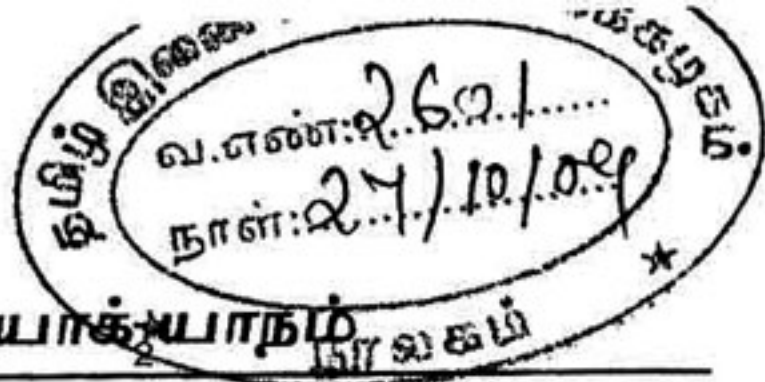 தமிழ்
கழகம்
வ.எண்: 2601
நாள்: 27/10/09
யாக்2யாநம்
நூலகம்